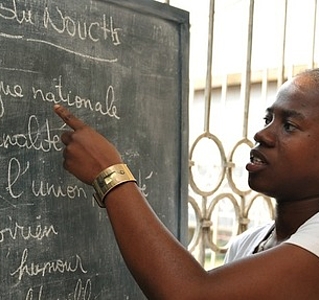 du NOUCHI
que nationale
nalité
l'union
ivoirien
humour